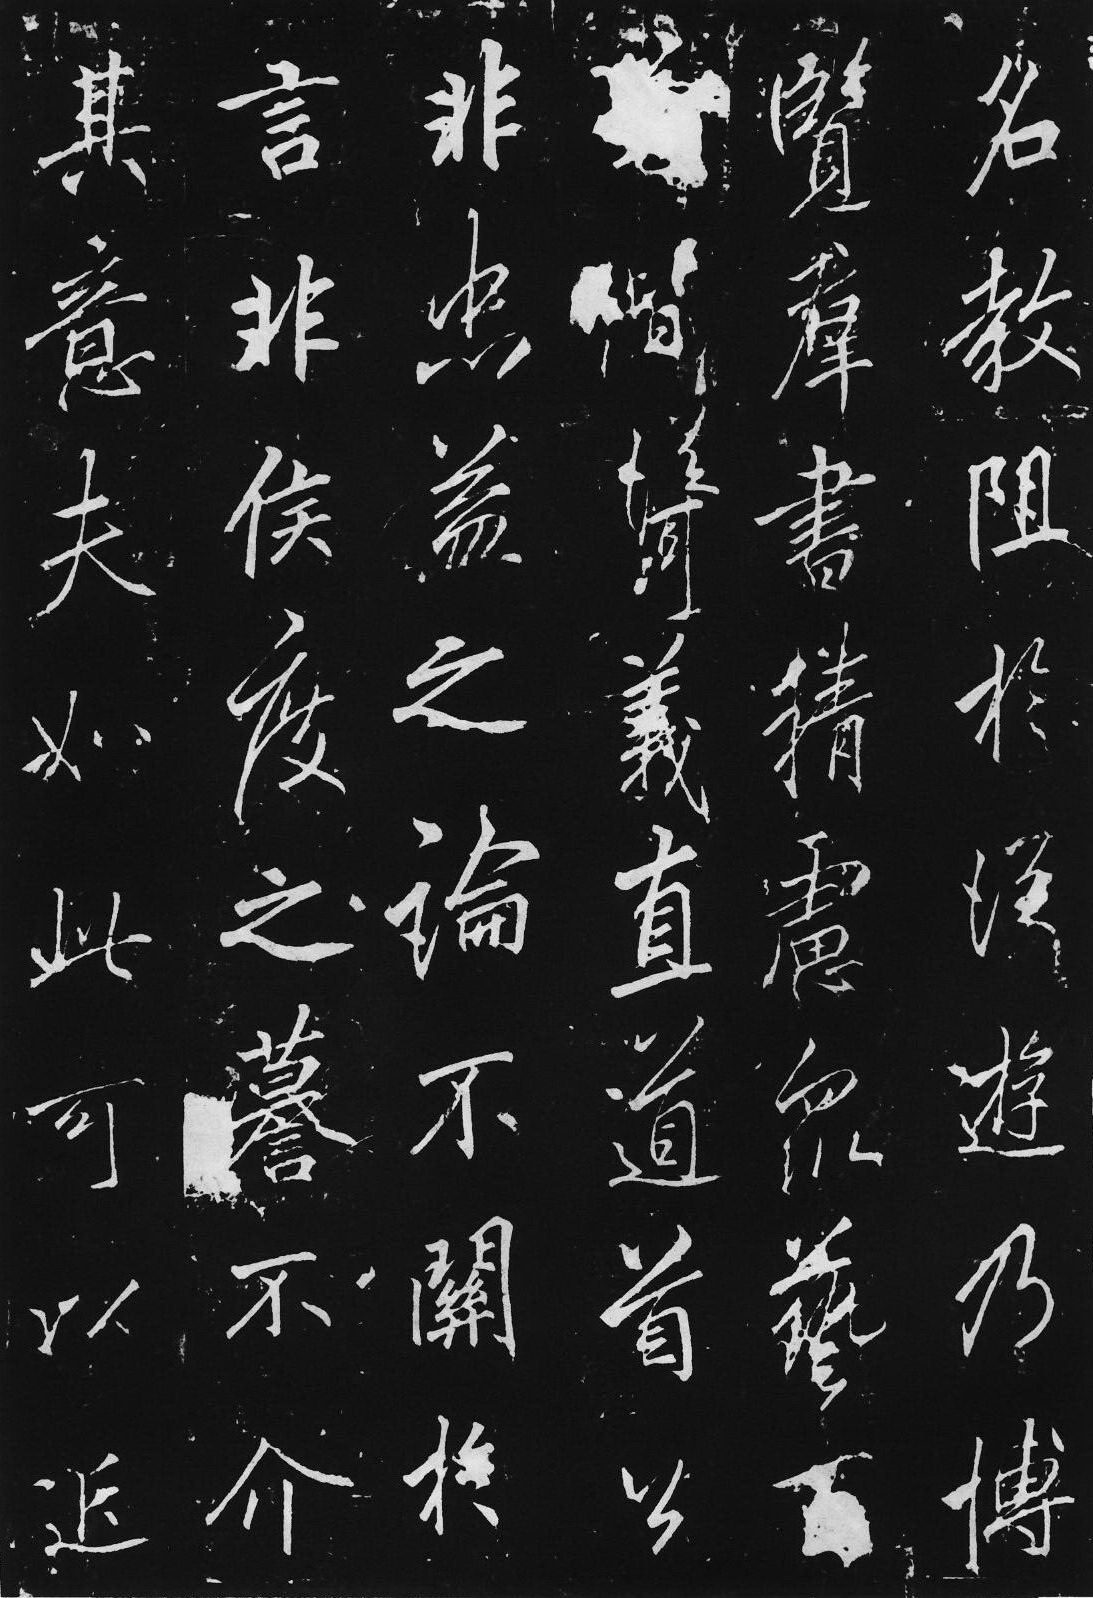 名教阻於從遊乃博
覽群書精慮衆藝百
階博義直道首公
非忠益之論不關於
言非侯度之謩不介
其意夫如此可以近